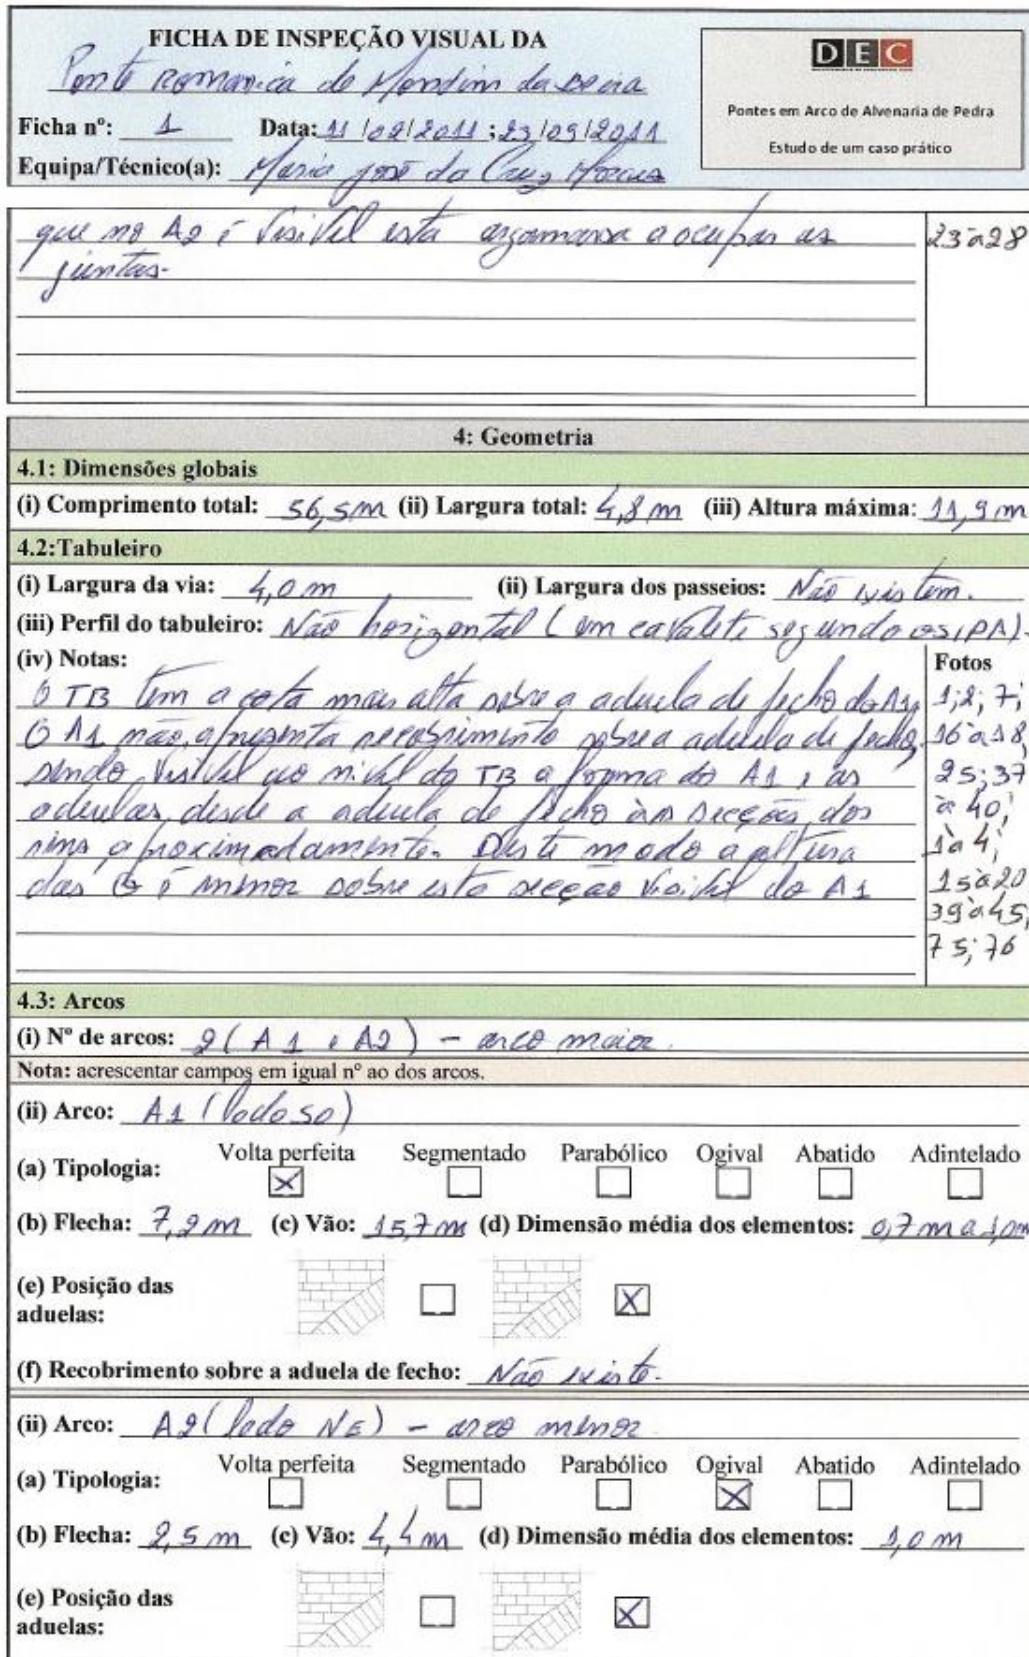 FICHA DE INSPEÇÃO VISUAL DA
Ponte Romanica de Mondim da Beira
DEC
Pontes em Arco de Alvenaria de Pedra
Estudo de um caso prático
Ficha nº: 1 Data: 11/02/2011; 23/09/2011
Equipa/Técnico(a): Maria José da Cruz Morais
que no A2 é visível esta argamassa a ocupar as
juntas.
23 a 28
4: Geometria
4.1: Dimensões globais
(i) Comprimento total: 56,5m (ii) Largura total: 4,8 m (iii) Altura máxima: 11,9 m
4.2:Tabuleiro
(i) Largura da via: 4,0 m (ii) Largura dos passeios: Não existem.
(iii) Perfil do tabuleiro: Não horizontal (em cavalete segundo os IPA).
(iv) Notas: Fotos
O TB tem a cota mais alta sobre a aduela de fecho do A1, 1; 2; 7;
O A1 não apresenta recobrimento sobre a aduela de fecho, 16 a 18
sendo visível ao nível do TB a forma do A1 e as 25; 37
aduelas, desde a aduela de fecho às secções dos a 40;
rins aproximadamente. Deste modo a altura 1 a 4;
das G é menor sobre esta secção visível do A1 15 a 20
39 a 45;
75; 76
4.3: Arcos
(i) Nº de arcos: 2 (A1 e A2) - arco maior.
Nota: acrescentar campos em igual nº ao dos arcos.
(ii) Arco: A1 (lado SO)
(a) Tipologia: Volta perfeita Segmentado Parabólico Ogival Abatido Adintelado
(b) Flecha: 7,2 m (c) Vão: 15,7 m (d) Dimensão média dos elementos: 0,7 m a 1,0m
(e) Posição das
aduelas:
(f) Recobrimento sobre a aduela de fecho: Não existe.
(ii) Arco: A2 (lado NE) - arco menor.
(a) Tipologia: Volta perfeita Segmentado Parabólico Ogival Abatido Adintelado
(b) Flecha: 2,5 m (c) Vão: 4,4 m (d) Dimensão média dos elementos: 1,0 m
(e) Posição das
aduelas: